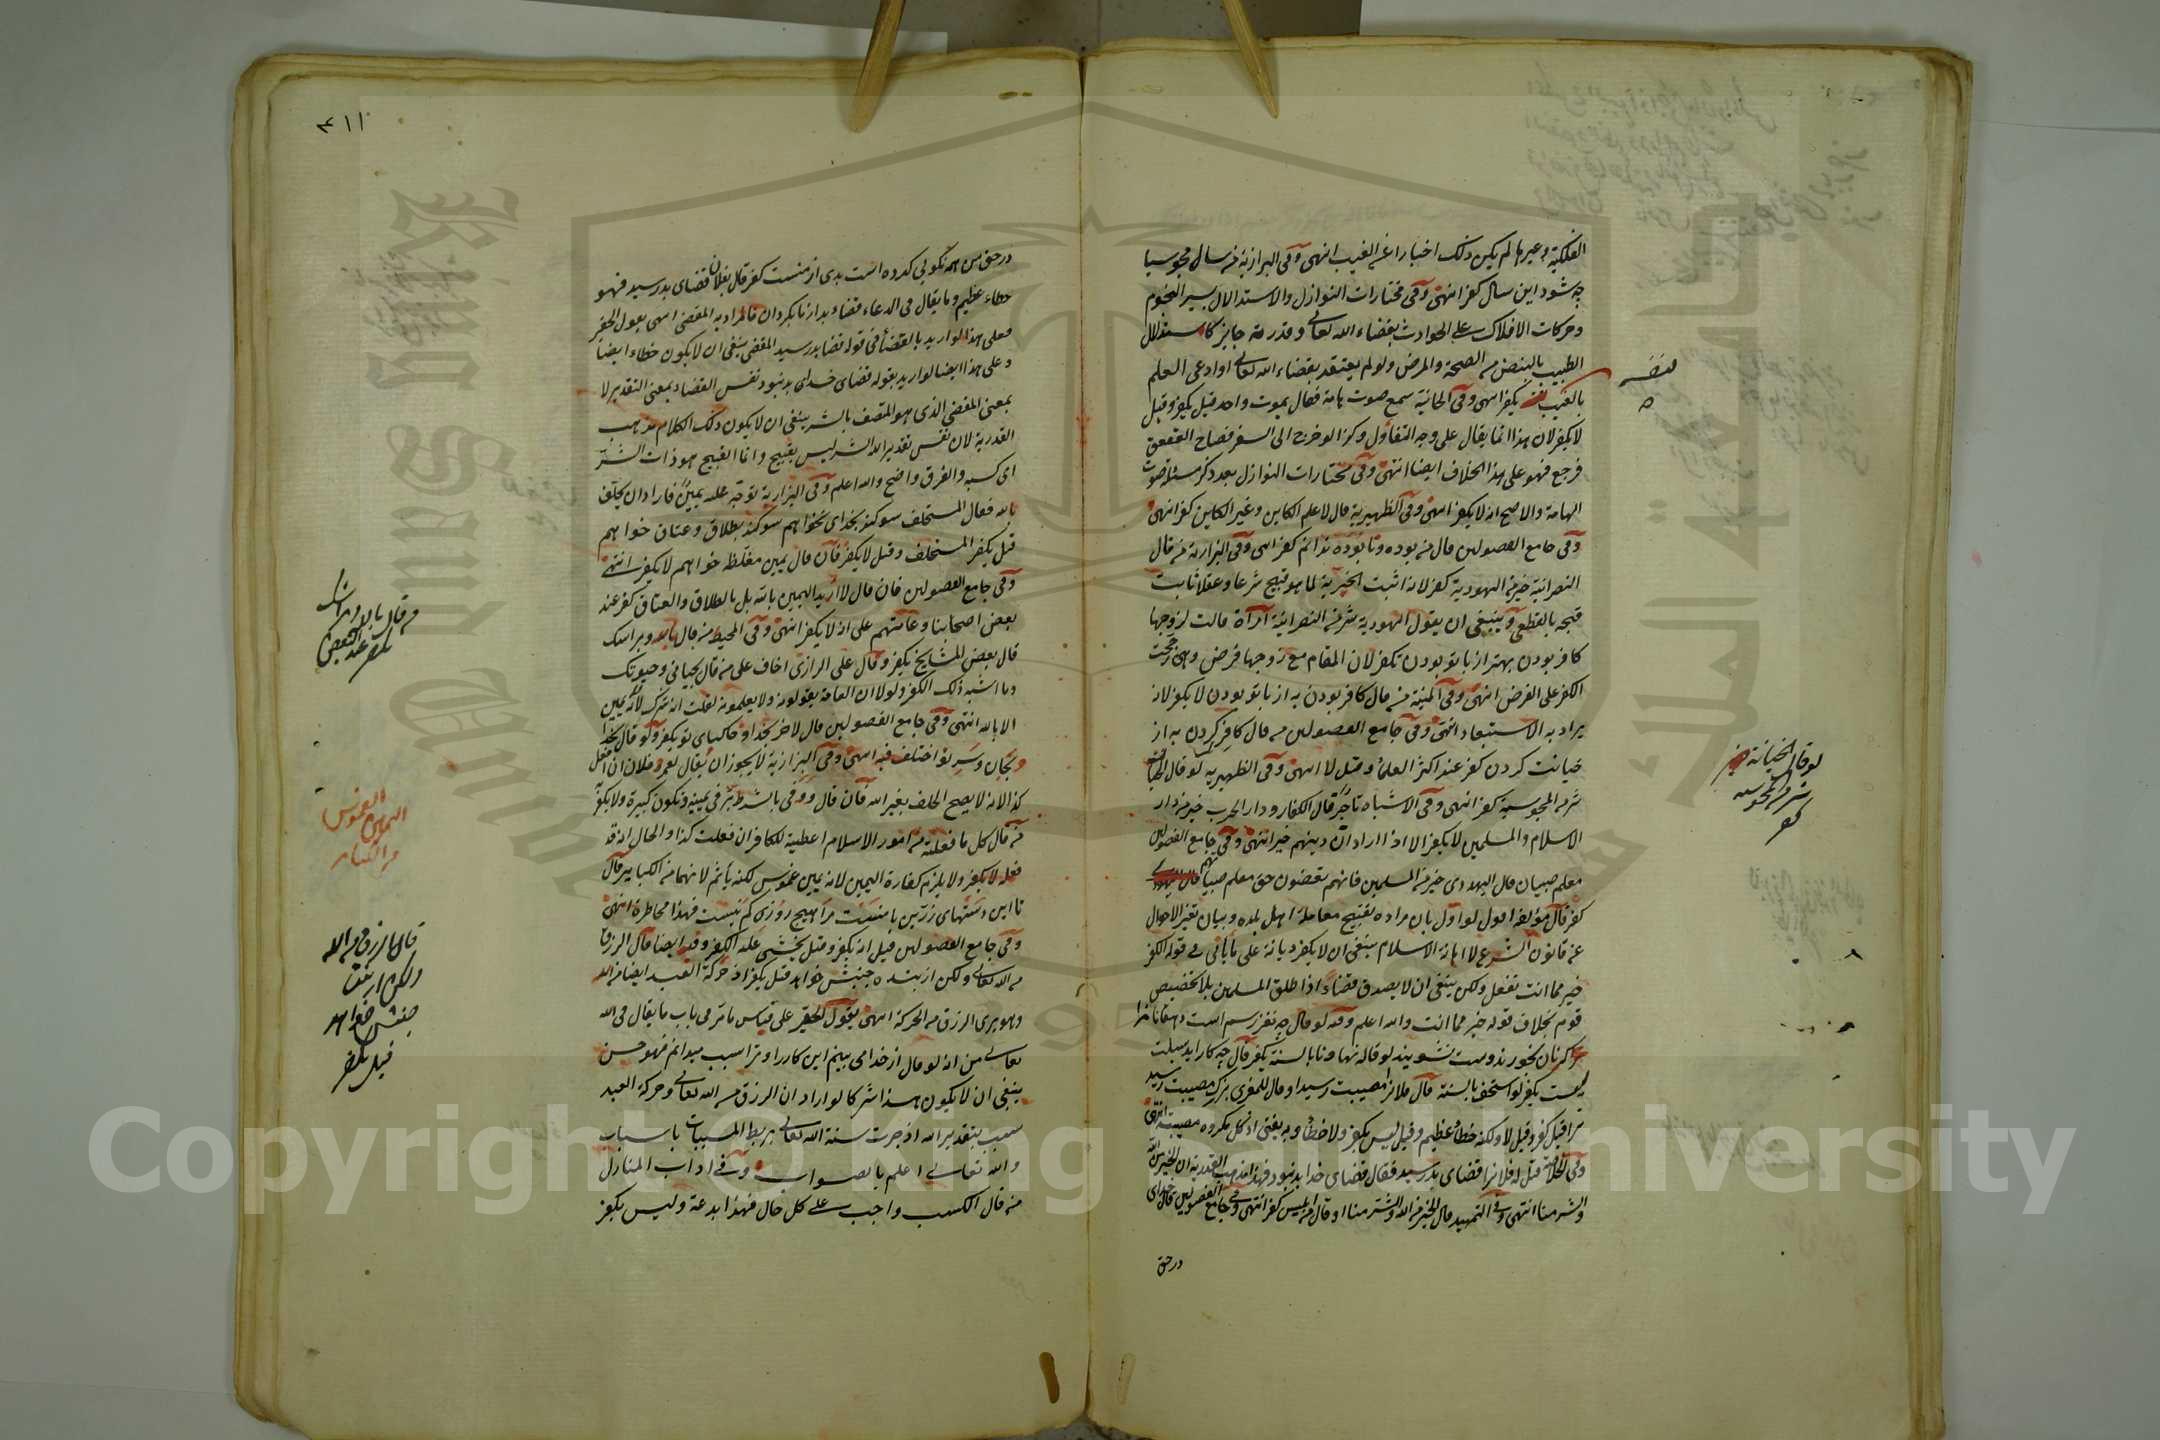 الفلكية وغيرها لم يكن ذلك اخبارا عن الغيب انتهى وفى البزازية من سال مجوسيا
چه شود اين سال كفر انتهى وفى مختارات النوازل والاستدلال بسير النجوم
وحركات الافلاك على الحوادث بقضاء الله تعالى وقدرته جايز كاستدلال
الطبيب بالنبض من الصحة والمرض ولو لم يعتقد بقضاء الله تعالى او ادعى العلم
بالغيب يكفر انتهى وفى الخانية سمع صوت هامة فقال يموت واحد قيل يكفر وقيل
لا يكفر لان هذا انما يقال على وجه التفاؤل وكذا لو خرج الى السفر فصاح العقعق
فرجع فهو على هذا الخلاف ايضا انتهى وفى مختارات النوازل بعد ذكر مسئلة صوت
الهامة والاصح انه لا يكفر انتهى وفى الظهيرية قال لا علم الكاين وغير الكاين كفر انتهى
وفى جامع الفصولين قال من بوده ونابوده بدانم كفر انتهى وفى البزازية من قال
النصرانية خير من اليهودية كفر لانه اثبت الخيرية لما هو قبيح شرعا وعقلا ثابت
قبحه بالقطعى وينبغى ان يقول اليهودية شر من النصرانية امرأة قالت لزوجها
كافر بودن بهتر از با تو بودن تكفر لان المقام مع زوجها فرض وهى رجحت
الكفر على الفرض انتهى وفى المنية من قال كافر بودن به از با تو بودن لا يكفر لانه
يراد به الاستبعاد انتهى وفى جامع الفصولين من قال كافرى كردن به از
خيانت كردن كفر عند اكثر العلماء وقيل لا انتهى وفى الظهيرية لو قال الخيانة
شر من المجوسية كفر انتهى وفى الاشباه تاجر قال الكفار ودار الحرب خير من دار
الاسلام والمسلمين لا يكفر الا اذا اراد ان دينهم خير انتهى وفى جامع الفصولين
معلم صبيان قال اليهودى خير من المسلمين فانهم يقضون حق معلم صبيانهم
كفر قال مؤلفه اقول لو اول بان مراده تقبيح معاملة اهل بلده وبيان تغير الاحوال
عن قانون الشرع لا اهانة الاسلام ينبغى ان لا يكفر ديانة على ما يأتى فى قوله الكفر
خير مما انت تفعل ولكن ينبغى ان لا يصدق قضاء اذا طلق المسلمين بلا تخصيص
قوم بخلاف قوله خير مما انت والله اعلم وفيه لو قال چه نغز رسم است دهقانان را
كه نان بخورند ودست نشويند لو قاله تهاونا بالسنة يكفر قال چه كار ايد سبلت
پست يكفر لو استخف بالسنة قال فلانرا مصيبت رسيد او قال للمعزى بزرك مصيبت رسيد
ترا قيل كفر وقيل لا ولكنه خطأ عظيم وقيل ليس بكفر ولا خطأ وبه يفتى اذ كل مكروه مصيبة انتهى
وفى الخلاصة قيل له فلانرا قضاى بد رسيد فقال قضاى خدا بد نبود فهذا مذهب القدرية ان الخير من الله
والشر منا انتهى وفى التمهيد قال الخير من الله والشر منا او قال من ابليس كفر انتهى وفى جامع الفصولين قال خداى
در حق
لو قال الخيانة
شر من المجوسية
كفر
٣١١
در حق من همه نكويى كرده است بدى از منست كفر قال بفلان قضاى بد رسيد فهو
خطاء عظيم وما يقال فى الدعاء قضاء بد از ما بكردان فالمراد به المقضى انتهى يقول الحقير
فعلى هذا لو اريد بالقضاء فى قوله قضا بد رسيد المقضى ينبغى ان لا يكون خطاء ايضا
وعلى هذا ايضا لو اريد بقوله قضاى خداى بد نبود نفس القضاء بمعنى التقدير لا
بمعنى المقضى الذى هو المتصف بالشر ينبغى ان لا يكون ذلك الكلام مذهب
القدرية لان نفس تقدير الله الشر ليس بقبيح وانما القبيح هو ذات الشر
اى كسبه والفرق واضح والله اعلم وفى البزازية توجه عليه يمين فاراد ان يحلف
بالله فقال المستحلف سوكند بخداى نخواهم سوكند بطلاق وعتاق خواهم
قيل يكفر المستحلف وقيل لا يكفر فان قال يمين مغلظه خواهم لا يكفر انتهى
وفى جامع الفصولين فان قال لا اريد اليمين بالله بل بالطلاق والعتاق كفر عند
بعض اصحابنا وعامتهم على انه لا يكفر انتهى وفى المحيط من قال بالله وبراسك
قال بعض المشايخ يكفر وقال على الرازى اخاف على من قال بحياتى وحيوتك
وما اشبه ذلك الكفر ولولا ان العامة يقولونه ولا يعلمونه لقلت انه شرك لانه يمين
الا بالله انتهى وفى جامع الفصولين قال لاخر بخدا وخاكپاى تو يكفر ولو قال بخدا
وبجان وسر تو اختلف فيه انتهى وفى البزازية لا يجوز ان يقال لعمر فلان ان افعل
كذا لانه لا يصح الحلف بغير الله فان قال ووفى بالشرط بر فى يمينه وتكون كبيرة ولا يكفر
من قال كل ما فعلته من امور الاسلام اعطيته للكافر ان فعلت كذا والحال انه قد
فعله لا يكفر ولا يلزمه كفارة اليمين لانه يمين غموس لكنه يأثم لانهما من الكباير قال
تا اين دستهاى زرين با منست مرا هيچ روزى كم نيست فهذا مخاطرة انتهى
وفى جامع الفصولين قيل انه يكفر وقيل يخشى عليه الكفر وفيه ايضا قال الرزق
من الله تعالى ولكن از بنده جنبش خواهد قيل يكفر اذ حركة العبد ايضا من الله
وهو يرى الرزق من الحركة انتهى يقول الحقير على قياس ما مر فى باب ما يقال فى الله
تعالى من انه لو قال از خدا مى بينم اين كار را وترا سبب ميدانم فهو حسن
ينبغى ان لا يكون هذا شركا لو اراد ان الرزق من الله تعالى وحركة العبد
سبب بتقدير الله اذ جرت سنة الله تعالى بربط المسببات باسباب
والله تعالى اعلم بالصواب وفى اداب المنازل
من قال الكسب واجب على كل حال فهذا بدعة وليس بكفر
اليمين الغموس
من الكبائر
قال الرزق من الله
ولكن از بنده
جنبش خواهد
قيل يكفر